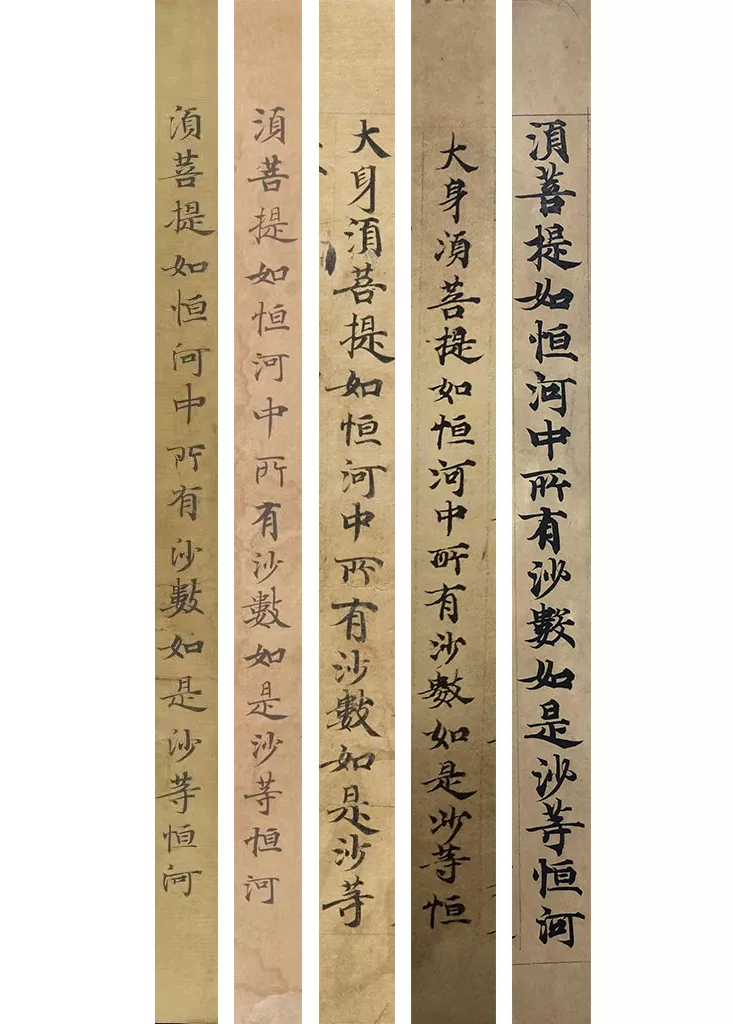 須菩提如恒河中所有沙數如是沙等恒河
大身須菩提如恒河中所有沙數如是沙等恒
大身須菩提如恒河中所有沙數如是沙等
須菩提如恒河中所有沙數如是沙等恒河
須菩提如恒河中所有沙數如是沙等恒河